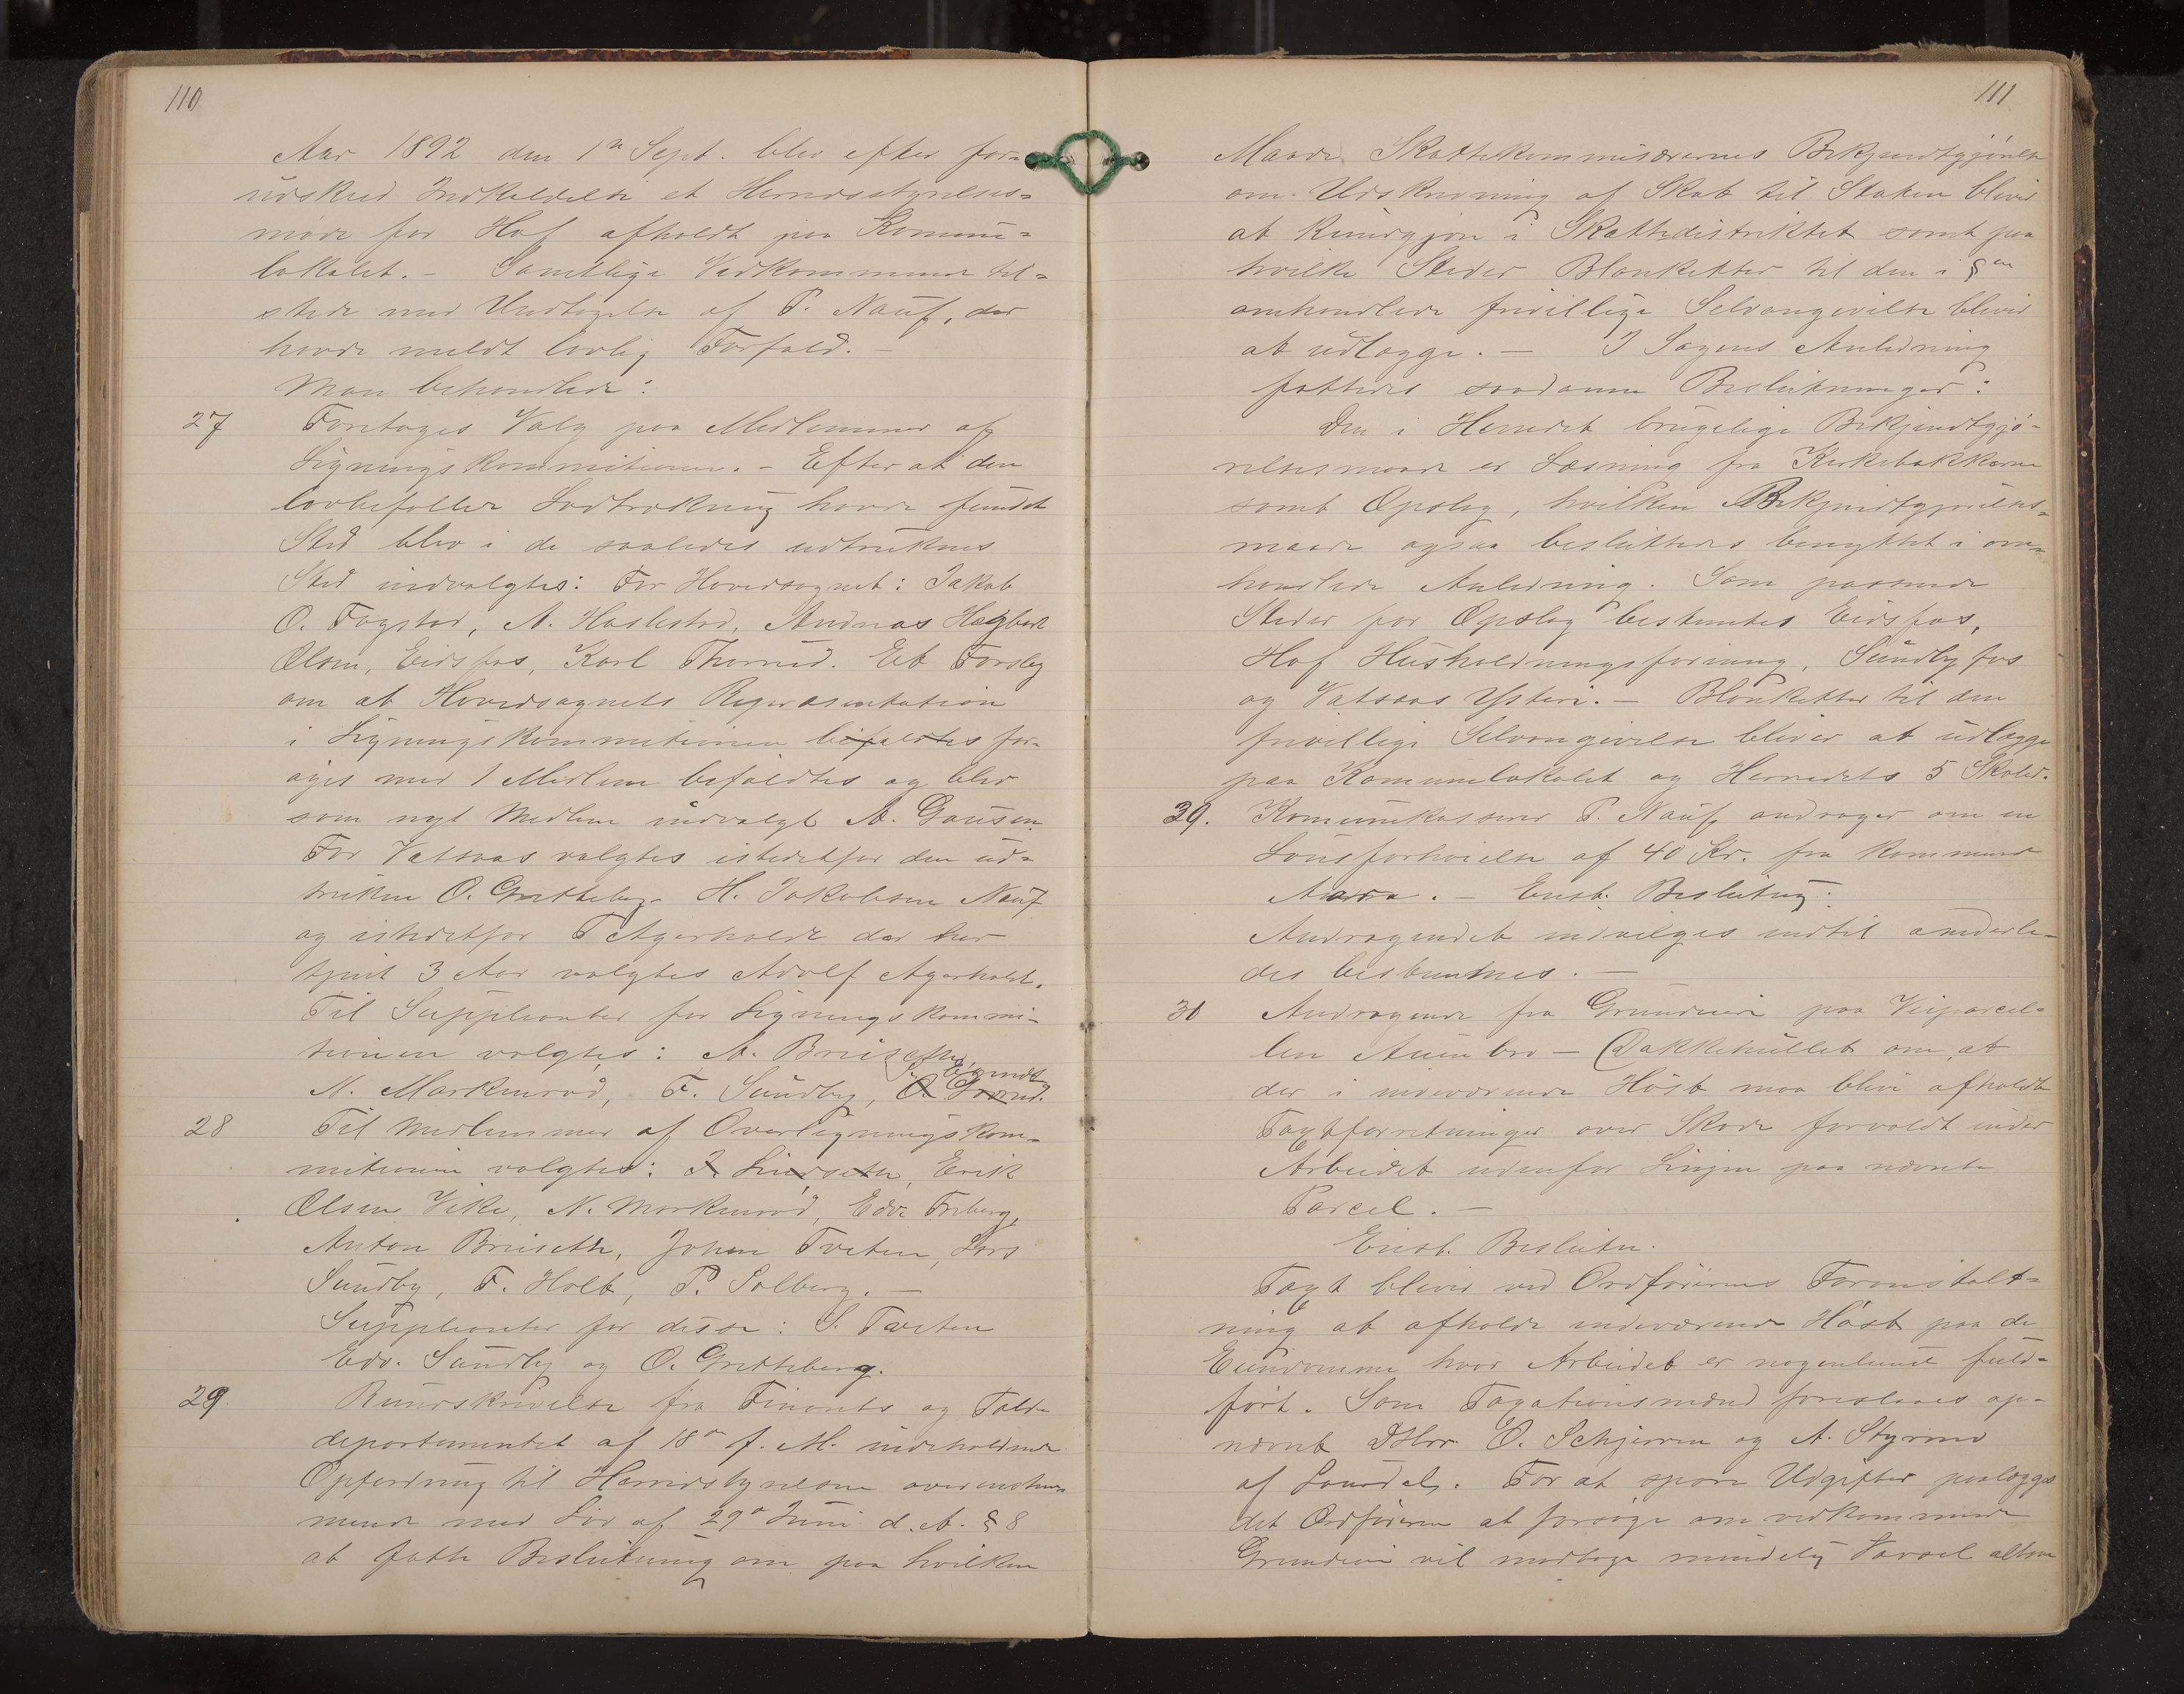 110
Aar 1892 den 1ste Sept. blev efter for-
udskud Indkaldelse et Herredsstyrelses-
møde for Hof afholdt paa Komune-
lokalet. – Samtlige Vedkommende til-
stede med Undtagelse af P. Nauf, der
havde meldt lovlig Forfald. –
Man behandlede:
27 Foretoges Valg paa Medlemmer af
Ligningskommitionen. – Efter at den
lovbefalte Lodtrækning havde fundet
Sted blev i de saaledes udtrukne
Sted indvalgtes: For Hovedsognet: Jakob
O. Fogstad, A. Haslestad, Andreas Hagbart
Olsen, Eidsfos, Karl Thorrud. Et Forslag
om at Hovedsognets Repræsentation
i Ligningskommitionen bifaldtes for-
øges med 1 Medlem bifaldtes og blev
som nyt Medlem indvalgt A. Gausen.
For Vatsaas valgtes istedetfor den ud-
trukne O. Gretteberg H. Jakobsen Nauf
og istedetfor T Agerholdt der har
tjent 3 Aar valgtes Adolf Agerholdt.
Til Suppleanter for Ligningskommi-
tionen valgtes: A. Bruseth,
N. Markerød, F. Sundby, O. Grorud.
28 Til Medlemmer af Overligningskom-
mitionen valgtes: J. Lindseth, Erik
Olsen Vike, N. Markerød, Edv. Freberg,
Anton Bruseth, Johan Tveten, Lars
Sundby, F. Holt, P. Solberg. –
Suppleanter for disse: S. Tveten
Edv. Sundby og O. Gretteberg.
29. Rundskrivelse fra Finants og Told-
departementet af 18de f. M. indeholdende
Opfordring til Herredstyrelsen overenstem-
mende med Lov af 29de Juni d. A. § 8
at fatte Beslutning om paa hvilken
111
Maade Skattekommisærernes Bekjendtgjørelse
om Udskrivning af Skat til Staten bliver
at kundgjøre i Skattedistriktet samt paa
hvilke Steder Blanketter til den i §en
omhandlede frivillige Selvangivelse bliver
at udlægge. – I Sagens Anledning
fattedes saadanne Beslutninger:
Den i Herredet brugelige Bekjendtgjø-
relsesmaade er Læsning fra Kirkebakkerne
samt Opslag, hvilken Bekjendtgjørelses-
maade ogsaa besluttedes benyttet i om-
handlede Anledning. Som passende
Steder for Opslag bestemtes Eidsfos,
Hof Husholdningsforening, Sundbyfos
og Vatsaas Ysteri. – Blanketter til den
frivillige Selvangivelse bliver at udlægge
paa Komunelokalet og Herredets 5 Skoled.
30. Komunekasserer P. Nauf andrager om en
Lønsforhøielse af 40 Kr. fra kommende
Aar. – Enst. Beslutng:
Andragendet indvilges indtil anderle-
des bestemmes. –
31 Andragende fra Grundeiere paa Veiparcel-
len Auen bro – Bakkehullet om, at
der i indeværende Høst maa blive afholdt
Taxtforretninger over Skade forvoldt under
Arbeidet udenfor Linjen paa nævnte
Parcel. –
Enst. Beslutn.
Taxt bliver ved Ordførerens Foranstalt-
ning at afholde indeværende Høst paa de
Eiendomme hvor Arbeidet er nogenlunde fuld-
ført. Som Taxationsmænd foreslaaes op-
nævnt DHrr. O. Schjerven og A. Styrmo
af Sande. For at spare Udgifter paalægges
det Ordføreren at forsøge om vedkommende
Grundeier vil modtage mundtlig Varsel altsaa